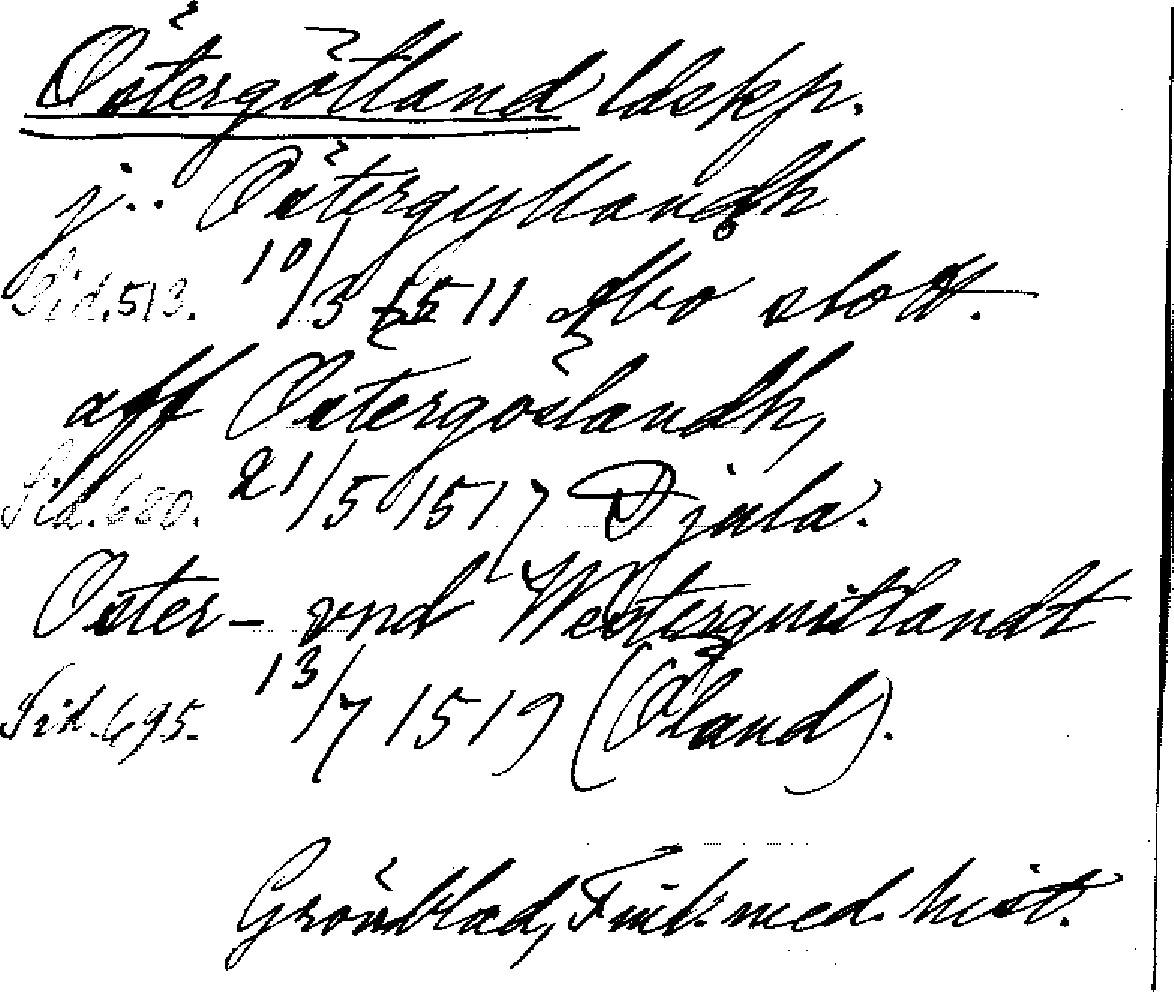 Östergötland ldskp.
j.. Östergyllandh
Sid. 513. 10/3 1511 Åbo slott.
aff Östergöslandh,
Sid. 680. 21/5 1517 Djula.
Oster- vnd Westerguitlandt
Sid. 695. 13/7 1519 (Öland).
Grönblad, Finl. med. hist.